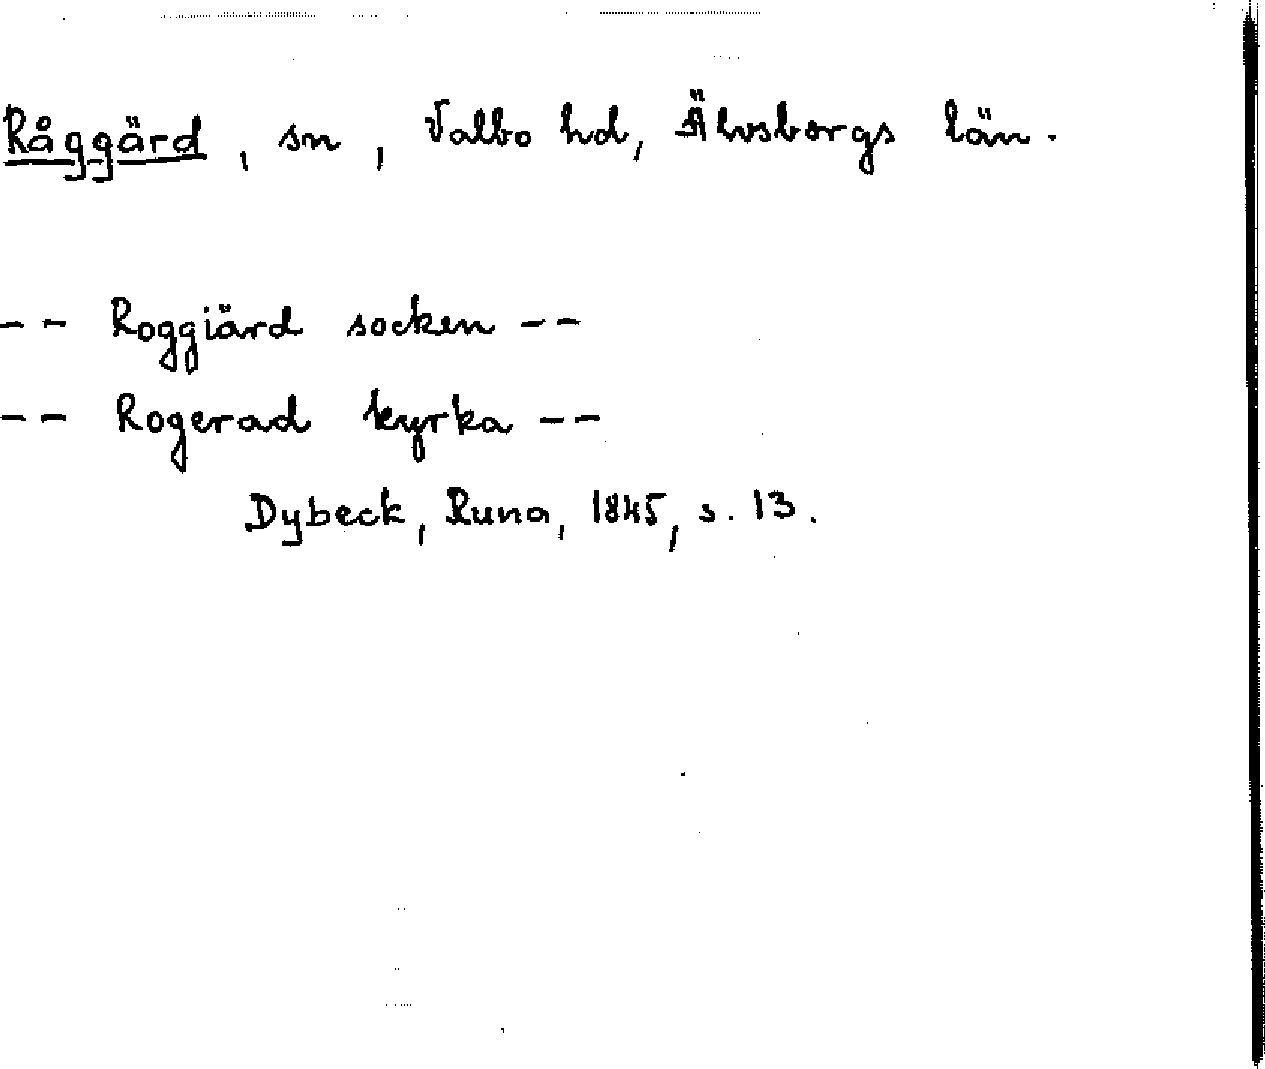 Råggärd, sn, Valbo hd, Älvsborgs län.
-- Roggiärd socken --
-- Rogerad kyrka --
Dybeck, Runa, 1845, s. 13.